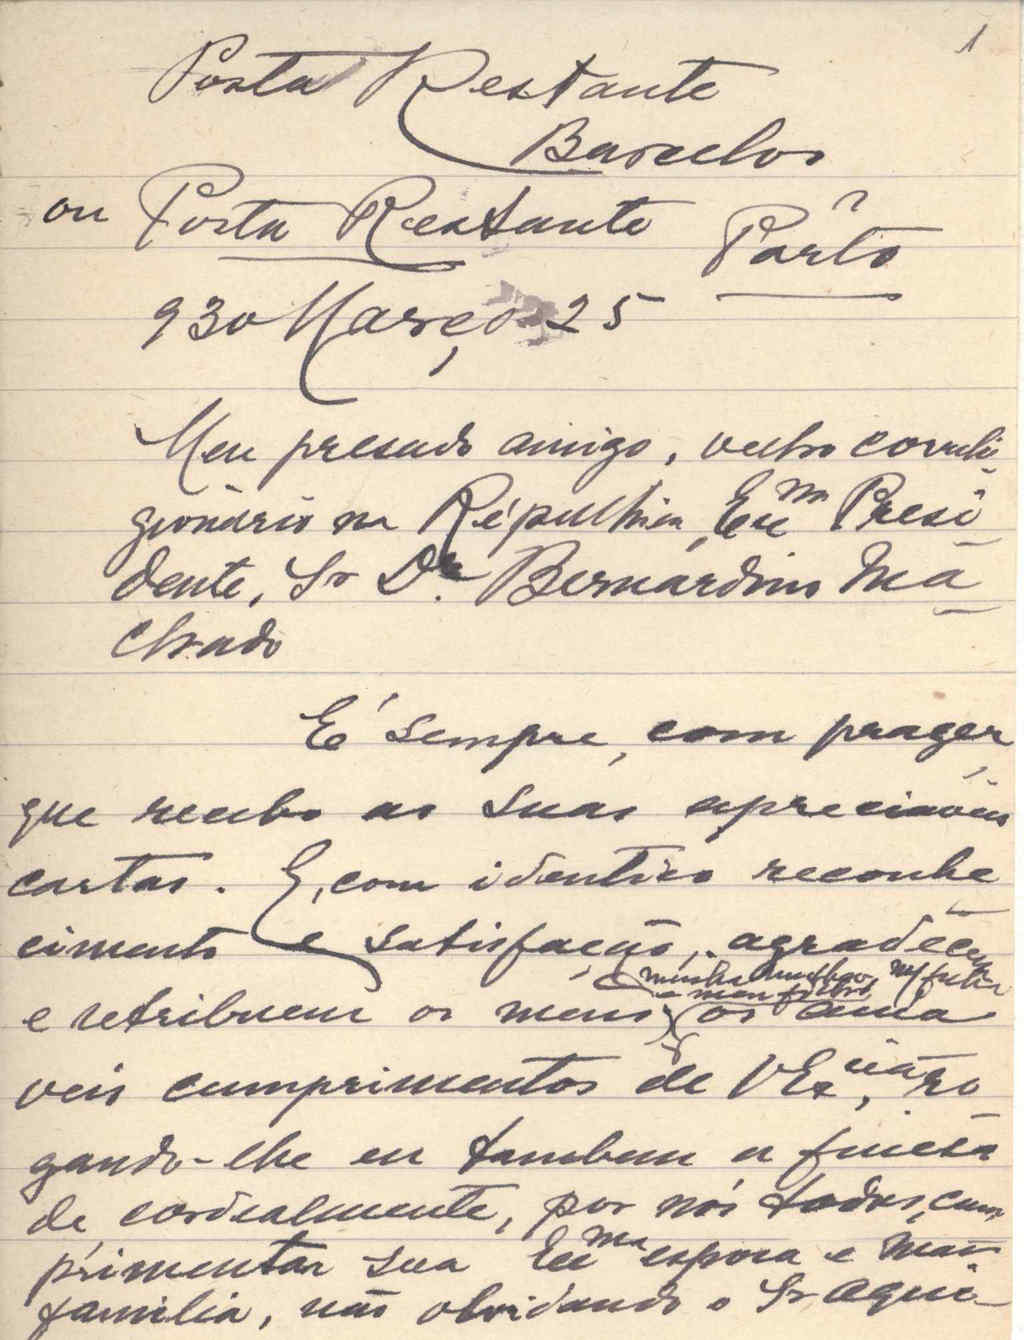 1
Posta Restante
Barcelos
ou Posta Restante Porto
930 Março 25
Meu presado amigo, velho correli-
gionário na Répública, Exmo Presi-
dente, Sr Dr. Bernardino Ma-
chado
É sempre, com prazer,
que recebo as suas apreciáveis
cartas. E, com identico reconhe-
cimento e satisfação, agradecem
minha mulher,
e meu filho,
e retribuem os meus os amá-
veis cumprimentos de VExcia, ro-
gando-lhe eu tambem a finesa
de cordealmente, por nós todos, cum-
primentar sua Exma esposa e mais
familia, não olvidando o Sr Aqui-